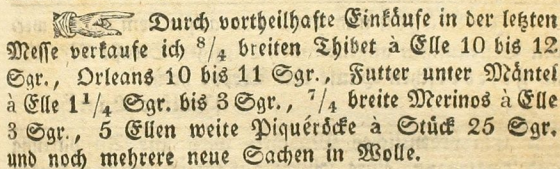 ☞ Durch vortheilhafte Einkäufe in der letzten
Messe verkaufe ich 8/4 breiten Thibet à Elle 10 bis 12
Sgr., Orleans 10 bis 11 Sgr., Futter unter Mäntel
à Elle 1 1/4 Sgr. bis 3 Sgr., 7/4 breite Merinos à Elle
3 Sgr., 5 Ellen weite Piquéröcke à Stück 25 Sgr.
und noch mehrere neue Sachen in Wolle.